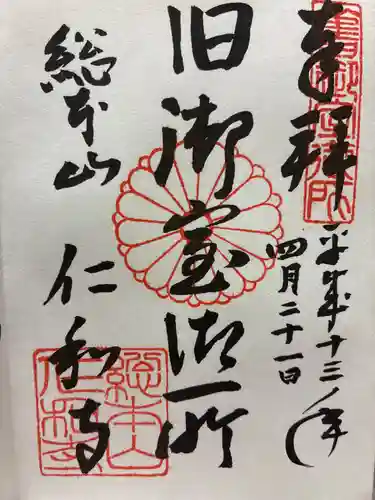 奉拝
平成十三年
四月二十一日
旧御室御所
総本山
仁和寺
総本山
仁和寺